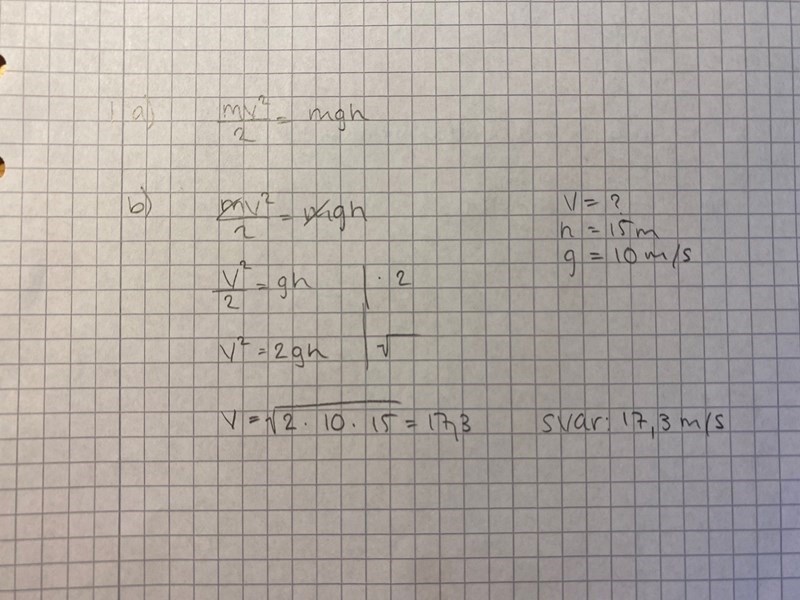 1 a) mv²/2 = mgh
b) mv²/2 = mgh
v = ?
h = 15m
g = 10 m/s
v²/2 = gh | · 2
v² = 2gh | √
v = √2 · 10 · 15 = 17,3
svar: 17,3 m/s